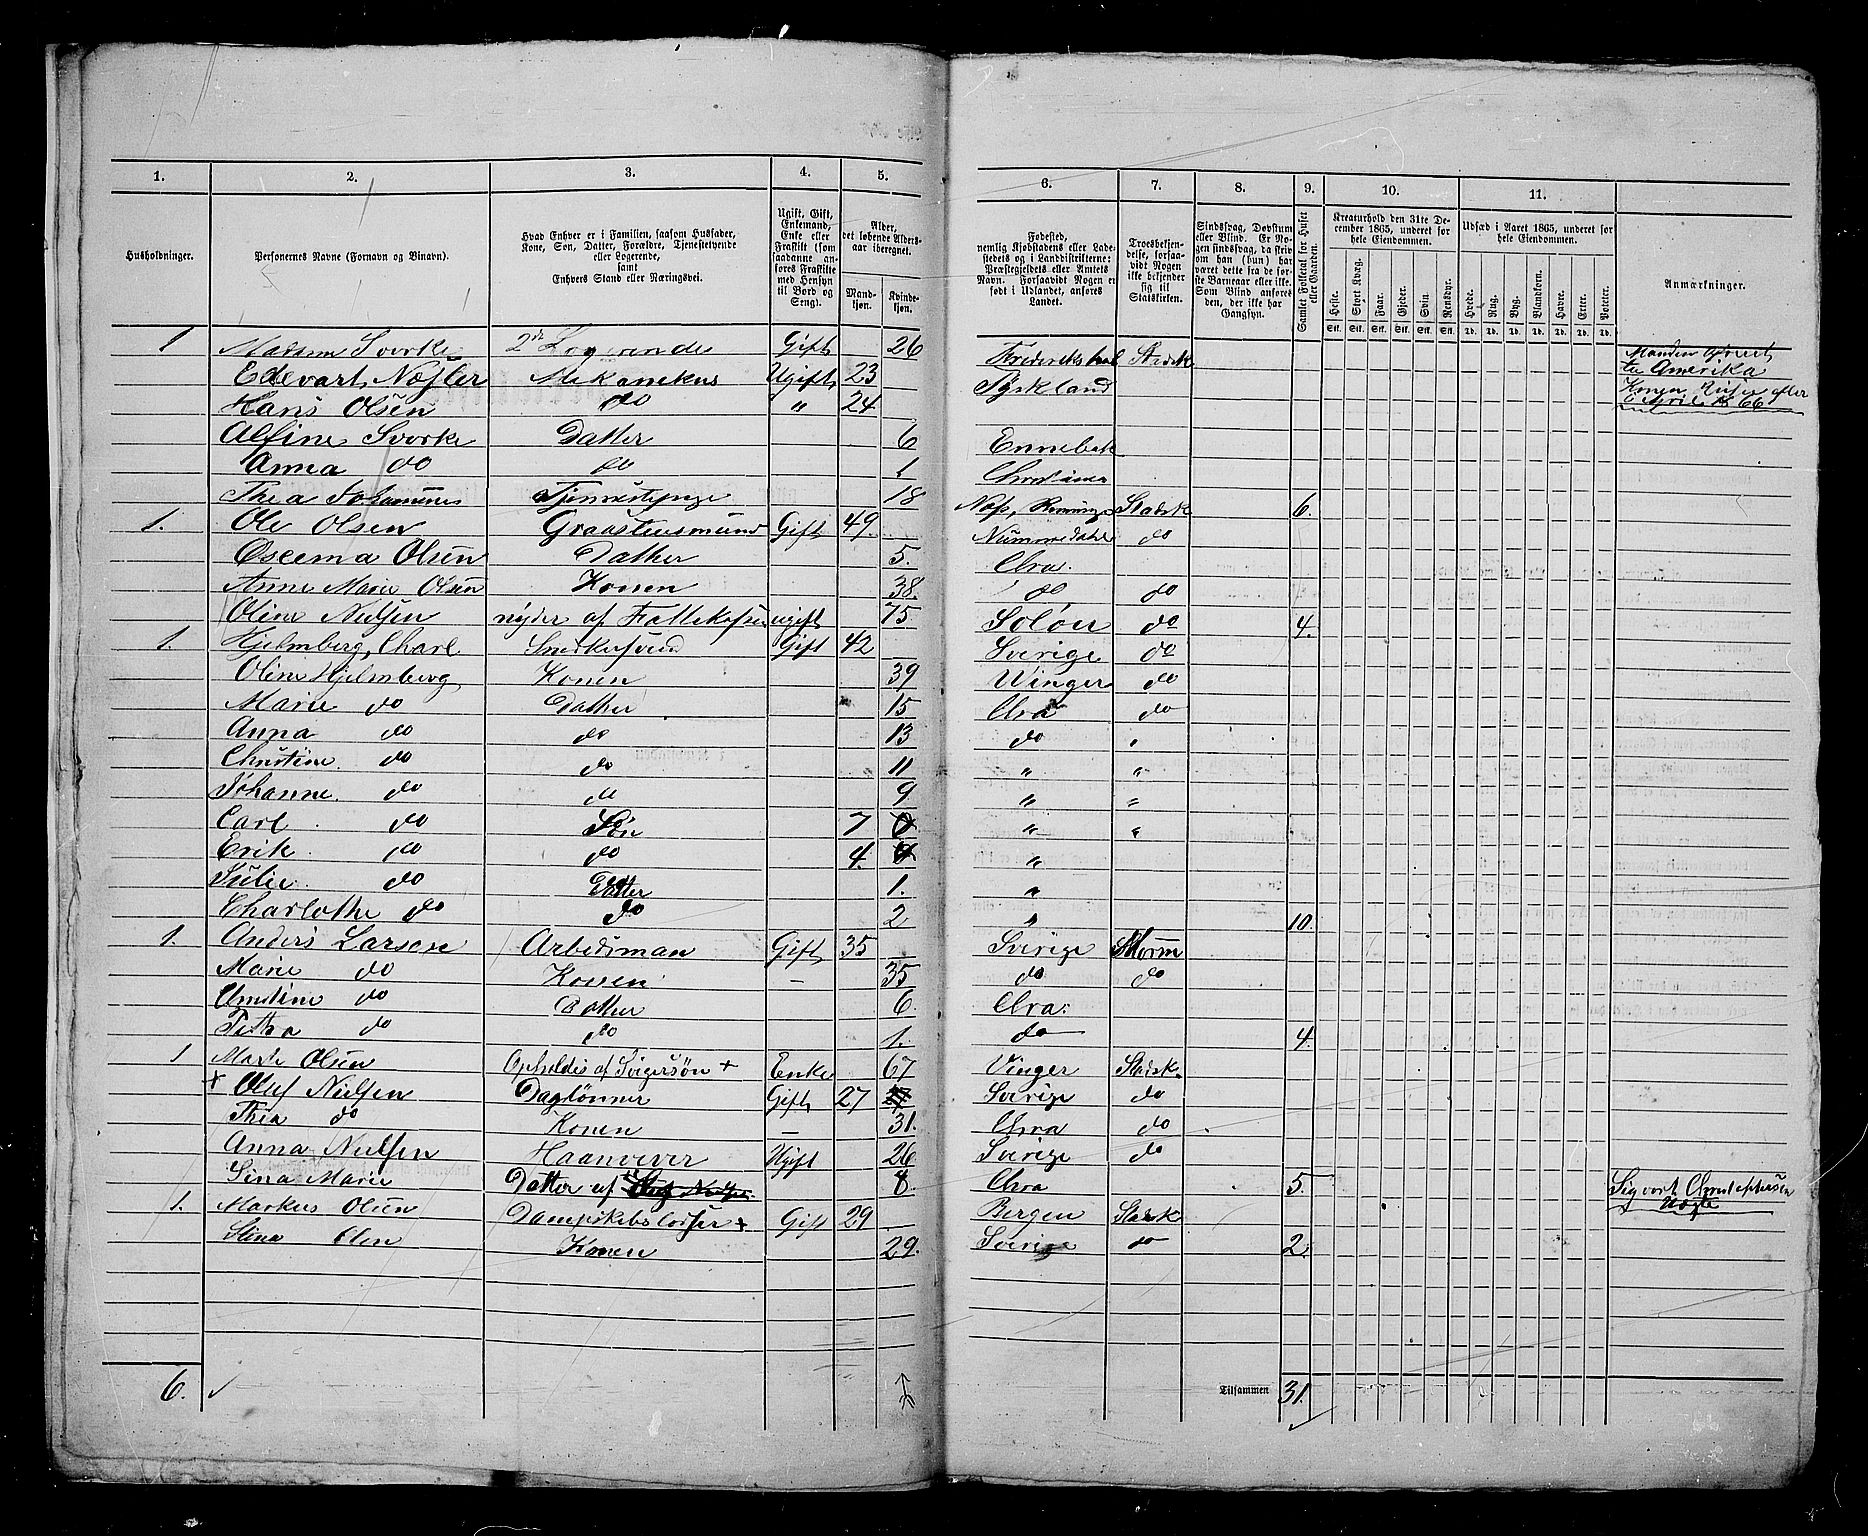 1. 2. 3. 4. 5.
Husholdninger.
Personernes Navne (Fornavn og Binavn).
Hvad Enhver er i Familien, saasom Husfader, Kone, Søn, Datter, Forældre, Tjenestetyende eller Logerende, samt Enhvers Stand eller Næringsvei.
Ugift, Gift, Enkemand, Enke eller Fraskilt (som saadanne anføres Fraskilte med Hensyn til Bord og Seng).
Alder, det løbende Alders-aar iberegnet.
Mand-kjøn. Kvinde-kjøn.
6. 7. 8. 9. 10. 11.
Fødested, nemlig Kjøbstadens eller Ladestedets eller i Landdistrikterne: Præstegjeldets eller Amtets Navn. Forsaavidt Nogen er født i Udlandet, anføres Landet.
Troesbekjendelse, forsaavidt Nogen ikke bekjender sig til Statskirken.
Sindssvag, Døvstum eller Blind. Er Nogen sindssvag, da skrives om han (hun) har været dette fra de første Barneaar eller ikke. Som Blind anføres den, der ikke har Gangsyn.
Samlet Folketal for Huset eller Gaarden.
Kreaturhold den 31te December 1865, underet for hele Eiendommen.
Heste. Stort Kvæg. Faar. Gjeder. Svin. Rensdyr.
Stk. Stk. Stk. Stk. Stk. Stk.
Udsæd i Aaret 1865, underet for hele Eiendommen.
Hvede. Rug. Byg. Blandkorn. Havre. Erter. Poteter.
Td. Td. Td. Td. Td. Td. Td.
Anmærkninger.
1 Madam Svorke 2de Logerende Gift 26 Frederikshal Statsk Manden reist
Edevart Næsler Mekanikus Ugift 23 Tyskland til Amerika
Hans Olsen do " 24 Konen reiser efter
April 66
Alfine Svorke Datter 6 Ennebak
Anna do do 1 Christiania
Thea Johannnes Tjenestepige 18 Næs, Statsk 6.
1. Ole Olsen Graastensmund Gift 49. Nummedahl do
Oseema Olsen Datter 5. Chra.
Anne Marie Olsen Konen 38. do do
Oline Nielsen nyder af Fattikassen ugift 75 Solör do 4.
1. Hjelmberg, Charl. Snedkersvend Gift 42 Sverige do
Oline Hjelmberg Konen 39 Winger do
Marie do Datter 15 Chra do
Anna do do 13 do "
Christine do do 11 " "
Johanne do do 9 " "
Carl do Søn 7 " "
Erik do do 4. "
Julie do Datter 1. "
Charlothe do do 2 " 10.
1. Anders Larsen Arbedsman Gift 35 Sverige Morm
Marie do Konen – 35 do do
Christine do Datter 6. Chra.
Petra do do 1. do 4.
1 Marte Olsen Opholdes af Svigersøn + Enke 67 Vinger Statsk.
+ Oluf Nielsen Daglönner Gift 27 Sverige do
Thea do Konen – 31. Chra do
Anna Nielsen Haanvever Ugift 26 Sverige do
Sina Marie Datter af 8. Chra 5. Sigvart
1. Markus Olsen Dampskibs + Gift 29 Bergen Statsk
Stina Olsen Konen 29. Sverige do 2.
6. Tilsammen 31.